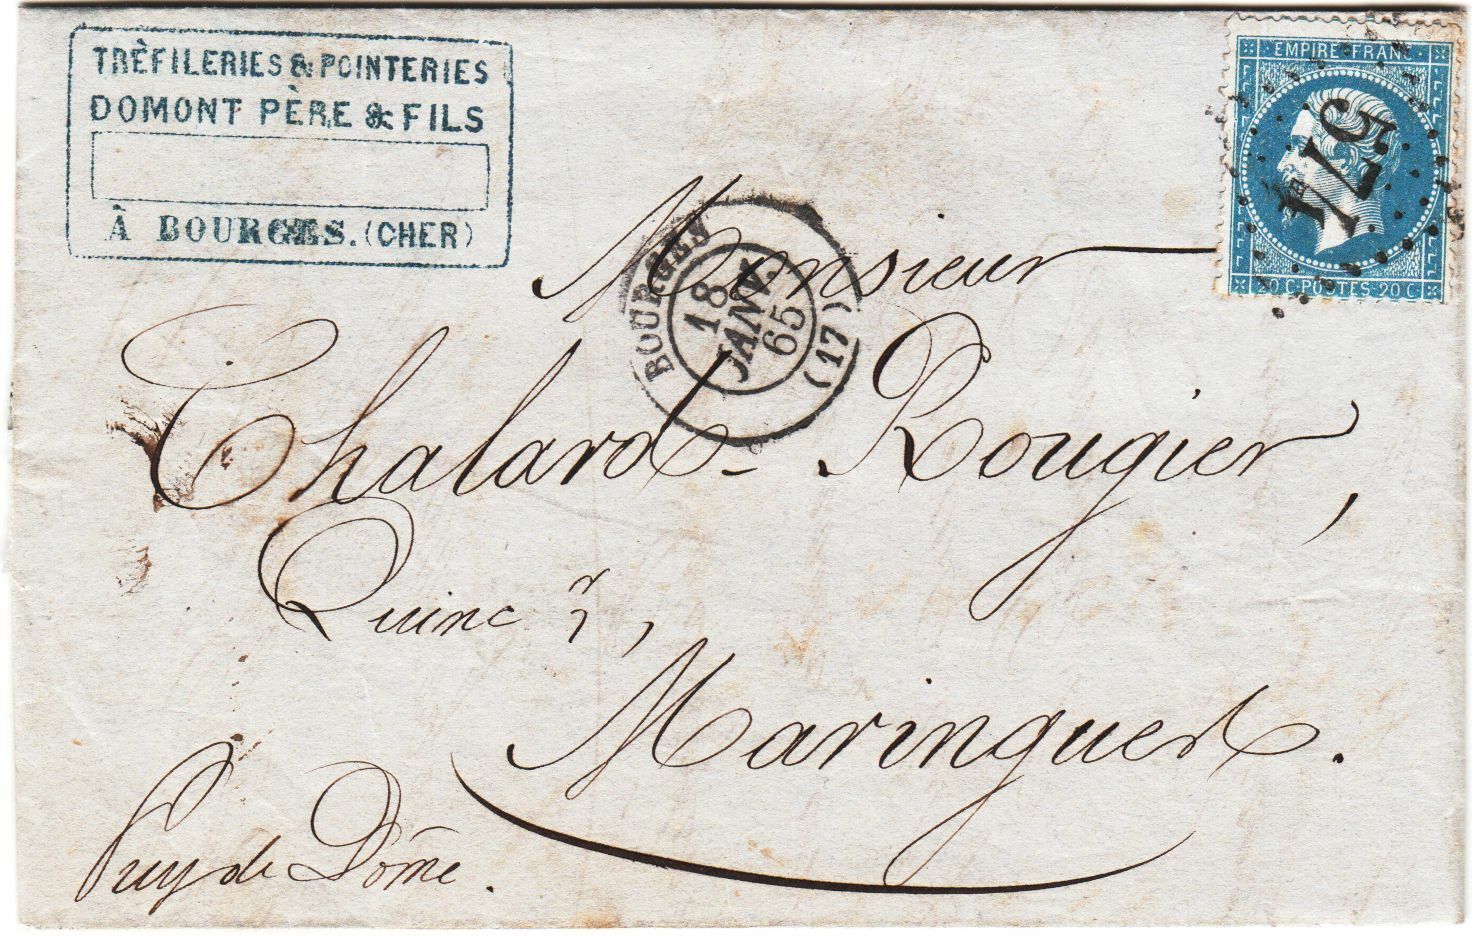 TRÈFILERIES & POINTERIES
DOMONT PÈRE & FILS
À BOURGES. (CHER)
EMPIRE FRANC
20 C POSTES 20 C
574
BOURGES
18
JANV.
65
(17)
Monsieur
Chalard - Rougier,
Quinc r,
Maringues.
Puy de Dôme.